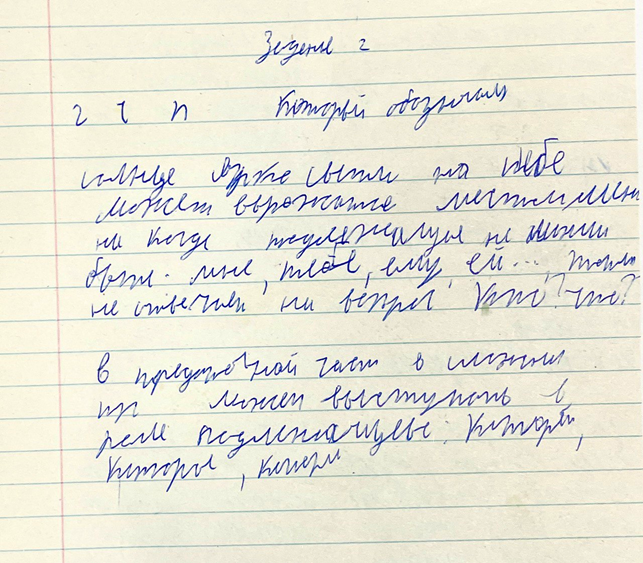 Задание 2
2 ч п который обозначать
солнце ярко светит на небе
может выражаться местоимени
ни когда подлежащим не может
быть. мне, тебе, ему, ей...,
не отвечает на вопрос Кто? что?
в придаточной част в сложном
пр может выступать в
роле подлежащего. Который,
Которое,